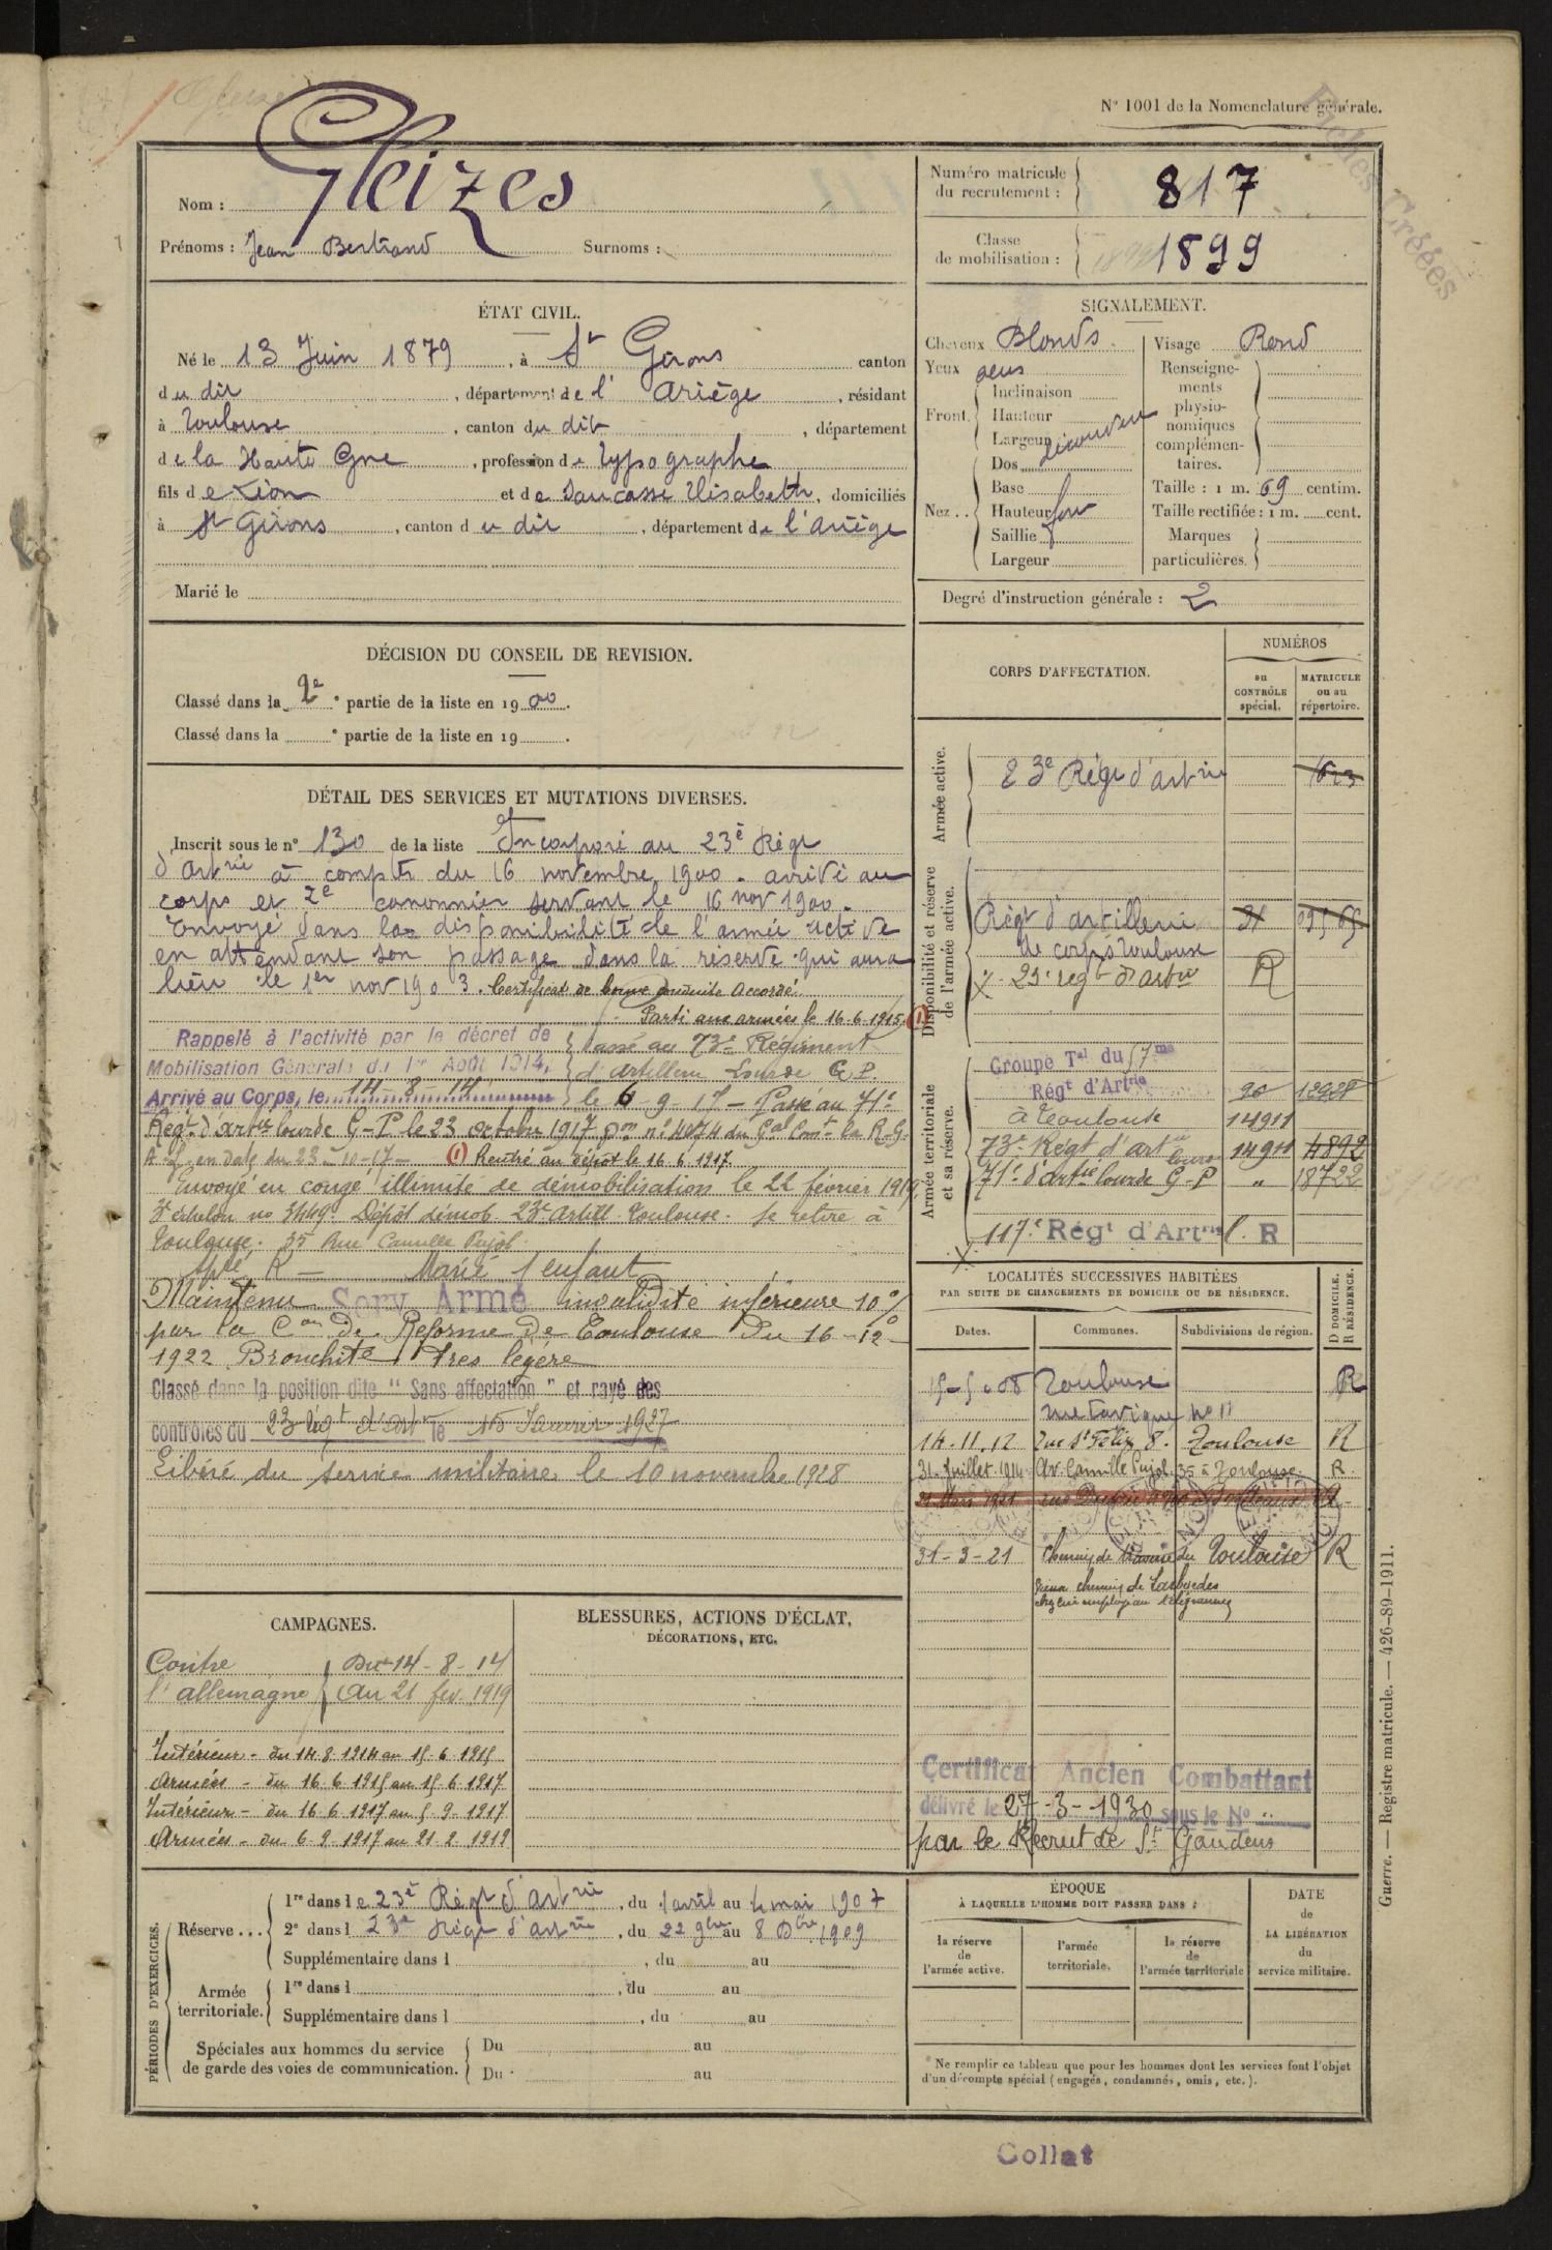 N° 1001 de la Nomenclature générale.
Fiches Créées
Nom : Gleizes
Prénoms : Jean Bertrand Surnoms :
Numéro matricule du recrutement : 817
Classe de mobilisation : 1899
ÉTAT CIVIL.
Né le 13 Juin 1879, à St Girons canton
du dit, département de l' Ariège, résidant
à Toulouse, canton du dit, département
de la Haute Gne, profession de Typographe
fils de Léon et de Elisabeth, domiciliés
à St Girons, canton du dit, département de l'Ariège
Marié le
SIGNALEMENT.
Cheveux Blonds. Visage Rond
Yeux
Front. Inclinaison
Hauteur
Largeur découvert
Nez.. Dos
Base
Hauteur
Saillie
Largeur
Renseignements physionomiques complémentaires.
Taille : 1 m. 69 centim.
Taille rectifiée : 1 m. cent.
Marques particulières.
Degré d'instruction générale : 2
DÉCISION DU CONSEIL DE REVISION.
Classé dans la 2e partie de la liste en 1900.
Classé dans la e partie de la liste en 19 .
DÉTAIL DES SERVICES ET MUTATIONS DIVERSES.
Inscrit sous le n° 130 de la liste Incorporé au 23e Régt
d'Artrie à compter du 16 novembre 1900. arrivé au
corps et 2e canonnier servant le 16 nov 1900.
Envoyé dans la disponibilité de l'armée active
en attendant son passage dans la réserve qui aura
lieu le 1er nov 1903. Certificat de bonne conduite Accordé.
Parti aux armées le 16-6-1915 (1)
Rappelé à l'activité par le décret de
Mobilisation Générale du 1er Août 1914,
Arrivé au Corps, le 14-8-14
Passé au 73e Régiment
d'Artillerie Lourde G.P.
le 6-9-17 - Passé au 71e
Régt d'artrie lourde G-P le 23 octobre 1917 n° 4074 du Gal Comt la R.G.
A.L. en date du 23-10-17 - (1) Rentré au dépôt le 16.6.1917.
Envoyé en congé illimité de démobilisation le 22 février 1919
3e échelon no 3449. Dépôt démob. 23e Artill. Toulouse. Se retire à
Toulouse. 35 Rue Camille Pujol.
Marié 1 enfant
Maintenu Serv Armé invalidité inférieure 10%
par la Con De Reforme De Toulouse Du 16-12-
1922 Bronchite très légère
Classé dans la position dite "Sans affectation" et rayé des
contrôles du 23 Régt d'Art le 15 Janvier 1927
Libéré du service militaire le 10 novembre 1928
CORPS D'AFFECTATION.
NUMÉROS
au CONTRÔLE spécial.
MATRICULE ou au répertoire.
Armée active.
23e Régt d'artrie
Disponibilité et réserve de l'armée active.
Régt d'artillerie
de corps Toulouse
23e régt d'artie R
Armée territoriale et sa réserve.
Groupe Tal du 57me
Régt d'Artrie
à Toulouse 14911
73e Régt d'artie lourde 14911 4892
71e d'artrie lourde G-P " 18722
117e Régt d'Artrie l. R
LOCALITÉS SUCCESSIVES HABITÉES
PAR SUITE DE CHANGEMENTS DE DOMICILE OU DE RÉSIDENCE.
Dates. Communes. Subdivisions de région. D DOMICILE. R RÉSIDENCE.
Toulouse R
14.11.12 rue St Félix 8. Toulouse R
31 Juillet 1914 Av. Camille Pujol 35 à Toulouse R.
31-3-21 Chemin de du Toulouse R
CAMPAGNES.
Contre l'allemagne Du 14-8-14
Au 21 fév. 1919
Intérieur - du 14.8.1914 au 15.6.1915
Armées - du 16.6.1915 au 15.6.1917
Intérieur - du 16.6.1917 au 5.9.1917
Armées - du 6.9.1917 au 21.2.1919
BLESSURES, ACTIONS D'ÉCLAT,
DÉCORATIONS, ETC.
Certificat Ancien Combattant
délivré le 27-3-1930 sous le N° ..
par le Recrut de St Gaudens
PÉRIODES D'EXERCICES.
Réserve... 1re dans le 23e Régt d'Artrie, du 1 avril au 4 mai 1907
2e dans l 23e Régt d'artrie, du 22 9bre au 8 Dbre 1909
Supplémentaire dans l , du au
Armée territoriale. 1re dans l , du au
Supplémentaire dans l , du au
Spéciales aux hommes du service de garde des voies de communication. Du au
Du au
ÉPOQUE
À LAQUELLE L'HOMME DOIT PASSER DANS :
la réserve de l'armée active.
l'armée territoriale.
la réserve de l'armée territoriale
DATE de LA LIBÉRATION du service militaire.
* Ne remplir ce tableau que pour les hommes dont les services font l'objet
d'un décompte spécial (engagés, condamnés, omis, etc.).
Guerre. — Registre matricule. — 426-89-1911.
Collat